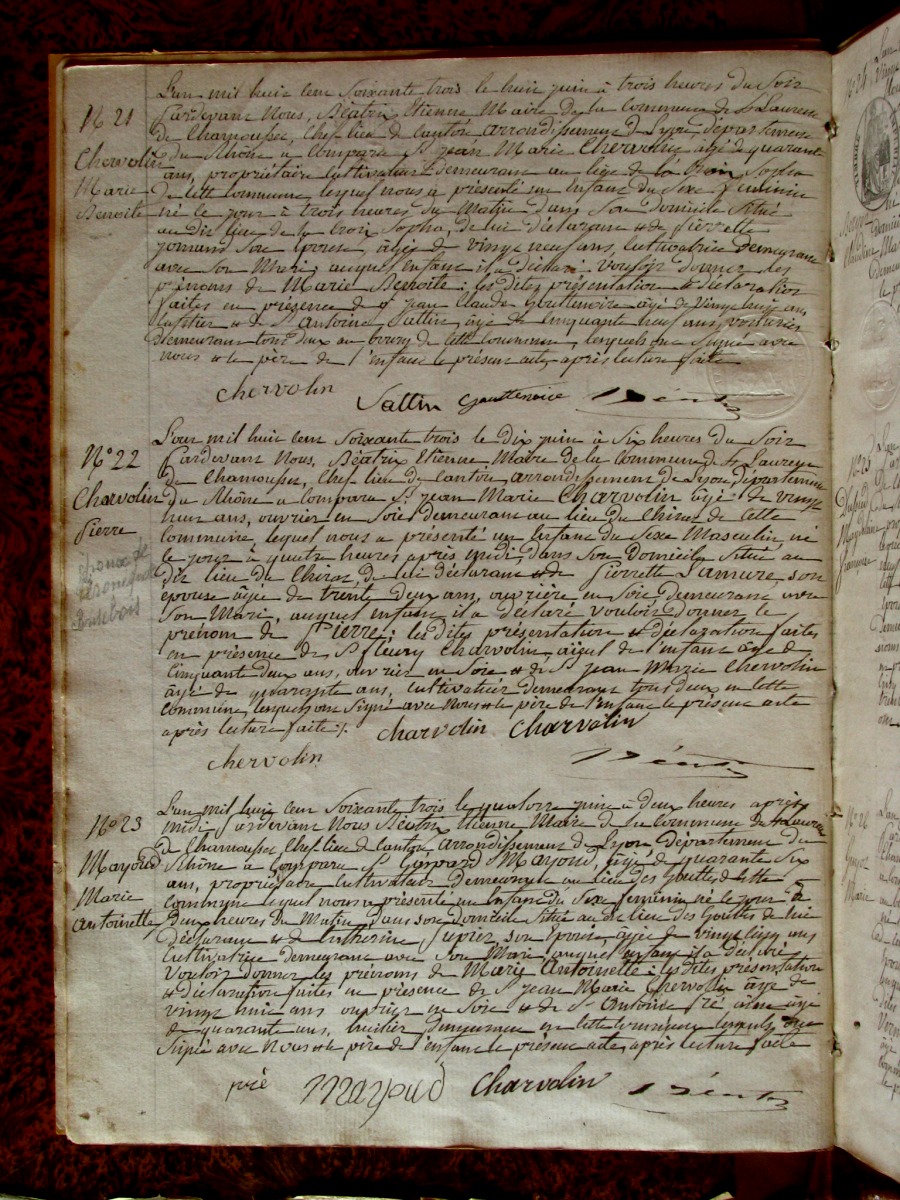 N° 21
Chervolin
Marie
Benoite
L'an mil huit cent Soixante trois le huit juin à trois heures du Soir
Pardevant Nous, Béatrix Etienne Maire de la Commune de St Laurent
de Chamousset, Chef lieu de Canton, arrondissement de Lyon, département
du Rhône a Comparu St jean Marie Chervolin agé de quarante
ans, propriétaire Cultivateur demeurant au lieu de la Croix Sopha
de cette Commune, lequel nous a présenté un Enfant du Sexe féminin
né le jour à trois heures du Matin dans Son domicile Situé
au dit lieu de la Croix Sopha, de lui déclarant & de pierrette
Son épouse, agée de vingt neuf ans, Cultivatrice demeurant
avec Son Mari, auquel Enfant il a déclaré vouloir donner les
prénoms de Marie Benoite; les dites présentation & déclaration
faites en présence de St jean Claude Gouttenoire âgé de vingt huit ans
& de St Antoine Sattin, âgé de Cinquante neuf ans, voiturier
demeurant tous deux au bourg de cette Commune, lesquels ont Signé avec
nous & le père de l'enfant le présent acte, après lecture faite
Chervolin
Sattin Gouttenoire Béatrix
N° 22
Charvolin
Pierre
L'an mil huit cent Soixante trois le dix juin à Six heures du Soir
Pardevant Nous, Béatrix Etienne Maire de la Commune de St Laurent
de Chamousset, Chef lieu de Canton, arrondissement de Lyon, département
du Rhône a Comparu St jean Marie Charvolin âgé de vingt
neuf ans, ouvrier en Soie demeurant au lieu du Chirat de cette
Commune, lequel nous a présenté un Enfant du Sexe Masculin, né
le jour à quatre heures après midi, dans Son Domicile Situé au
dit lieu du Chirat, de lui déclarant & de Pierrette Lamure, son
épouse agée de trente deux ans, ouvrière en Soie, demeurant avec
Son Mari, auquel enfant il a déclaré vouloir donner le
prénom de Pierre; les dites présentation & déclaration faites
en présence de St fleury Charvolin, aieul de l'enfant âgé de
Cinquante deux ans, ouvrier en Soie & de St jean Marie Chervolin
âgé de quarante ans, Cultivateur demeurant tous deux en cette
Commune, lesquels ont Signé avec Nous & le père de l'enfant le présent acte
après lecture faite.
Charvolin Charvolin
Chervolin Béatrix
N° 23
Mayoud
Marie
Antoinette
L'an mil huit cent Soixante trois le quatorze juin à deux heures après
midi Pardevant Nous Béatrix Etienne Maire de la Commune de St Laurent
de Chamousset, Chef lieu de Canton arrondissement de Lyon Département du
Rhône a Comparu St Gaspard Mayoud, âgé de quarante Six
ans, propriétaire Cultivateur demeurant au lieu des Gouttes de cette
Commune lequel nous a présenté un Enfant du Sexe féminin né le jour à
Deux heures du Matin, dans son domicile Situé au dit lieu des Gouttes de lui
déclarant & de Catherine son épouse, âgée de vingt cinq ans
Cultivatrice demeurant avec Son Mari, auquel enfant il a déclaré
Vouloir donner les prénoms de Marie Antoinette; les dites présentation
& déclaration faites en présence de St jean Marie Chervolin âgé de
vingt huit ans ouvrier en Soie & de St Antoine âgé
de quarante ans, huissier demeurant en cette Commune lesquels ont
Signé avec Nous & le père de l'enfant le présent acte, après lecture faite
Mayoud Charvolin Béatrix